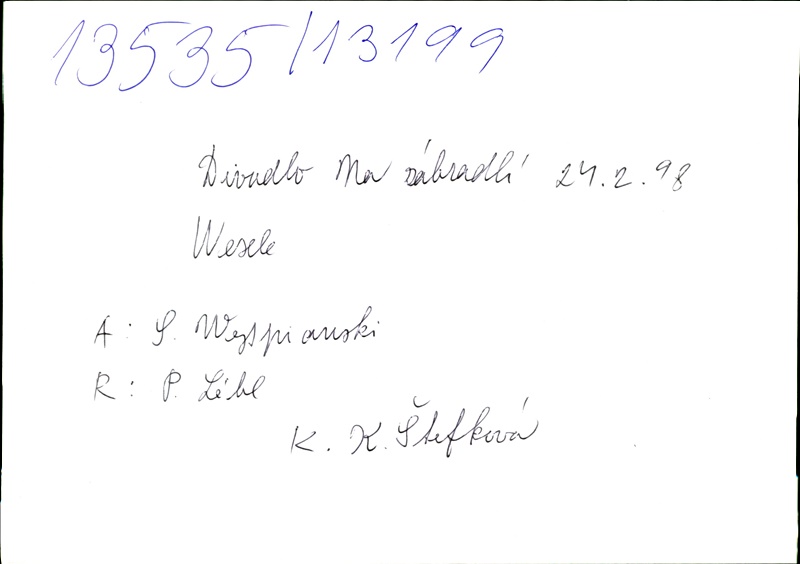 13535/13199
Divadlo Na zábradlí 24.2.98
Wesele
A: S. Wyspianski
R: P. Lébl
K. K. Štefková